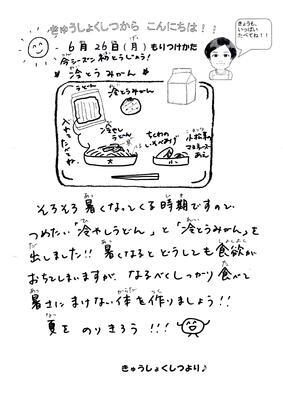 きゅうしょくしつから こんにちは!!
きょうも、
いっぱい
たべてね!!
6月26日(月)もりつけかた
今シーズン初とうじょう!
*冷とうみかん*
うどん
冷とうみかん
入れちゃってね
冷やし
うどん
ちくわの
いそべあげ
小松菜の
マヨネーズ
あえ
大
小
そろそろ暑くなってくる時期ですので、
つめたい「冷やしうどん」と「冷とうみかん」を
出しました!!暑くなるとどうしても食欲が
おちてしまいますが、なるべくしっかり食べて
暑さにまけない体を作りましょう!!
夏をのりきろう!!!
きゅうしょくしつより♪